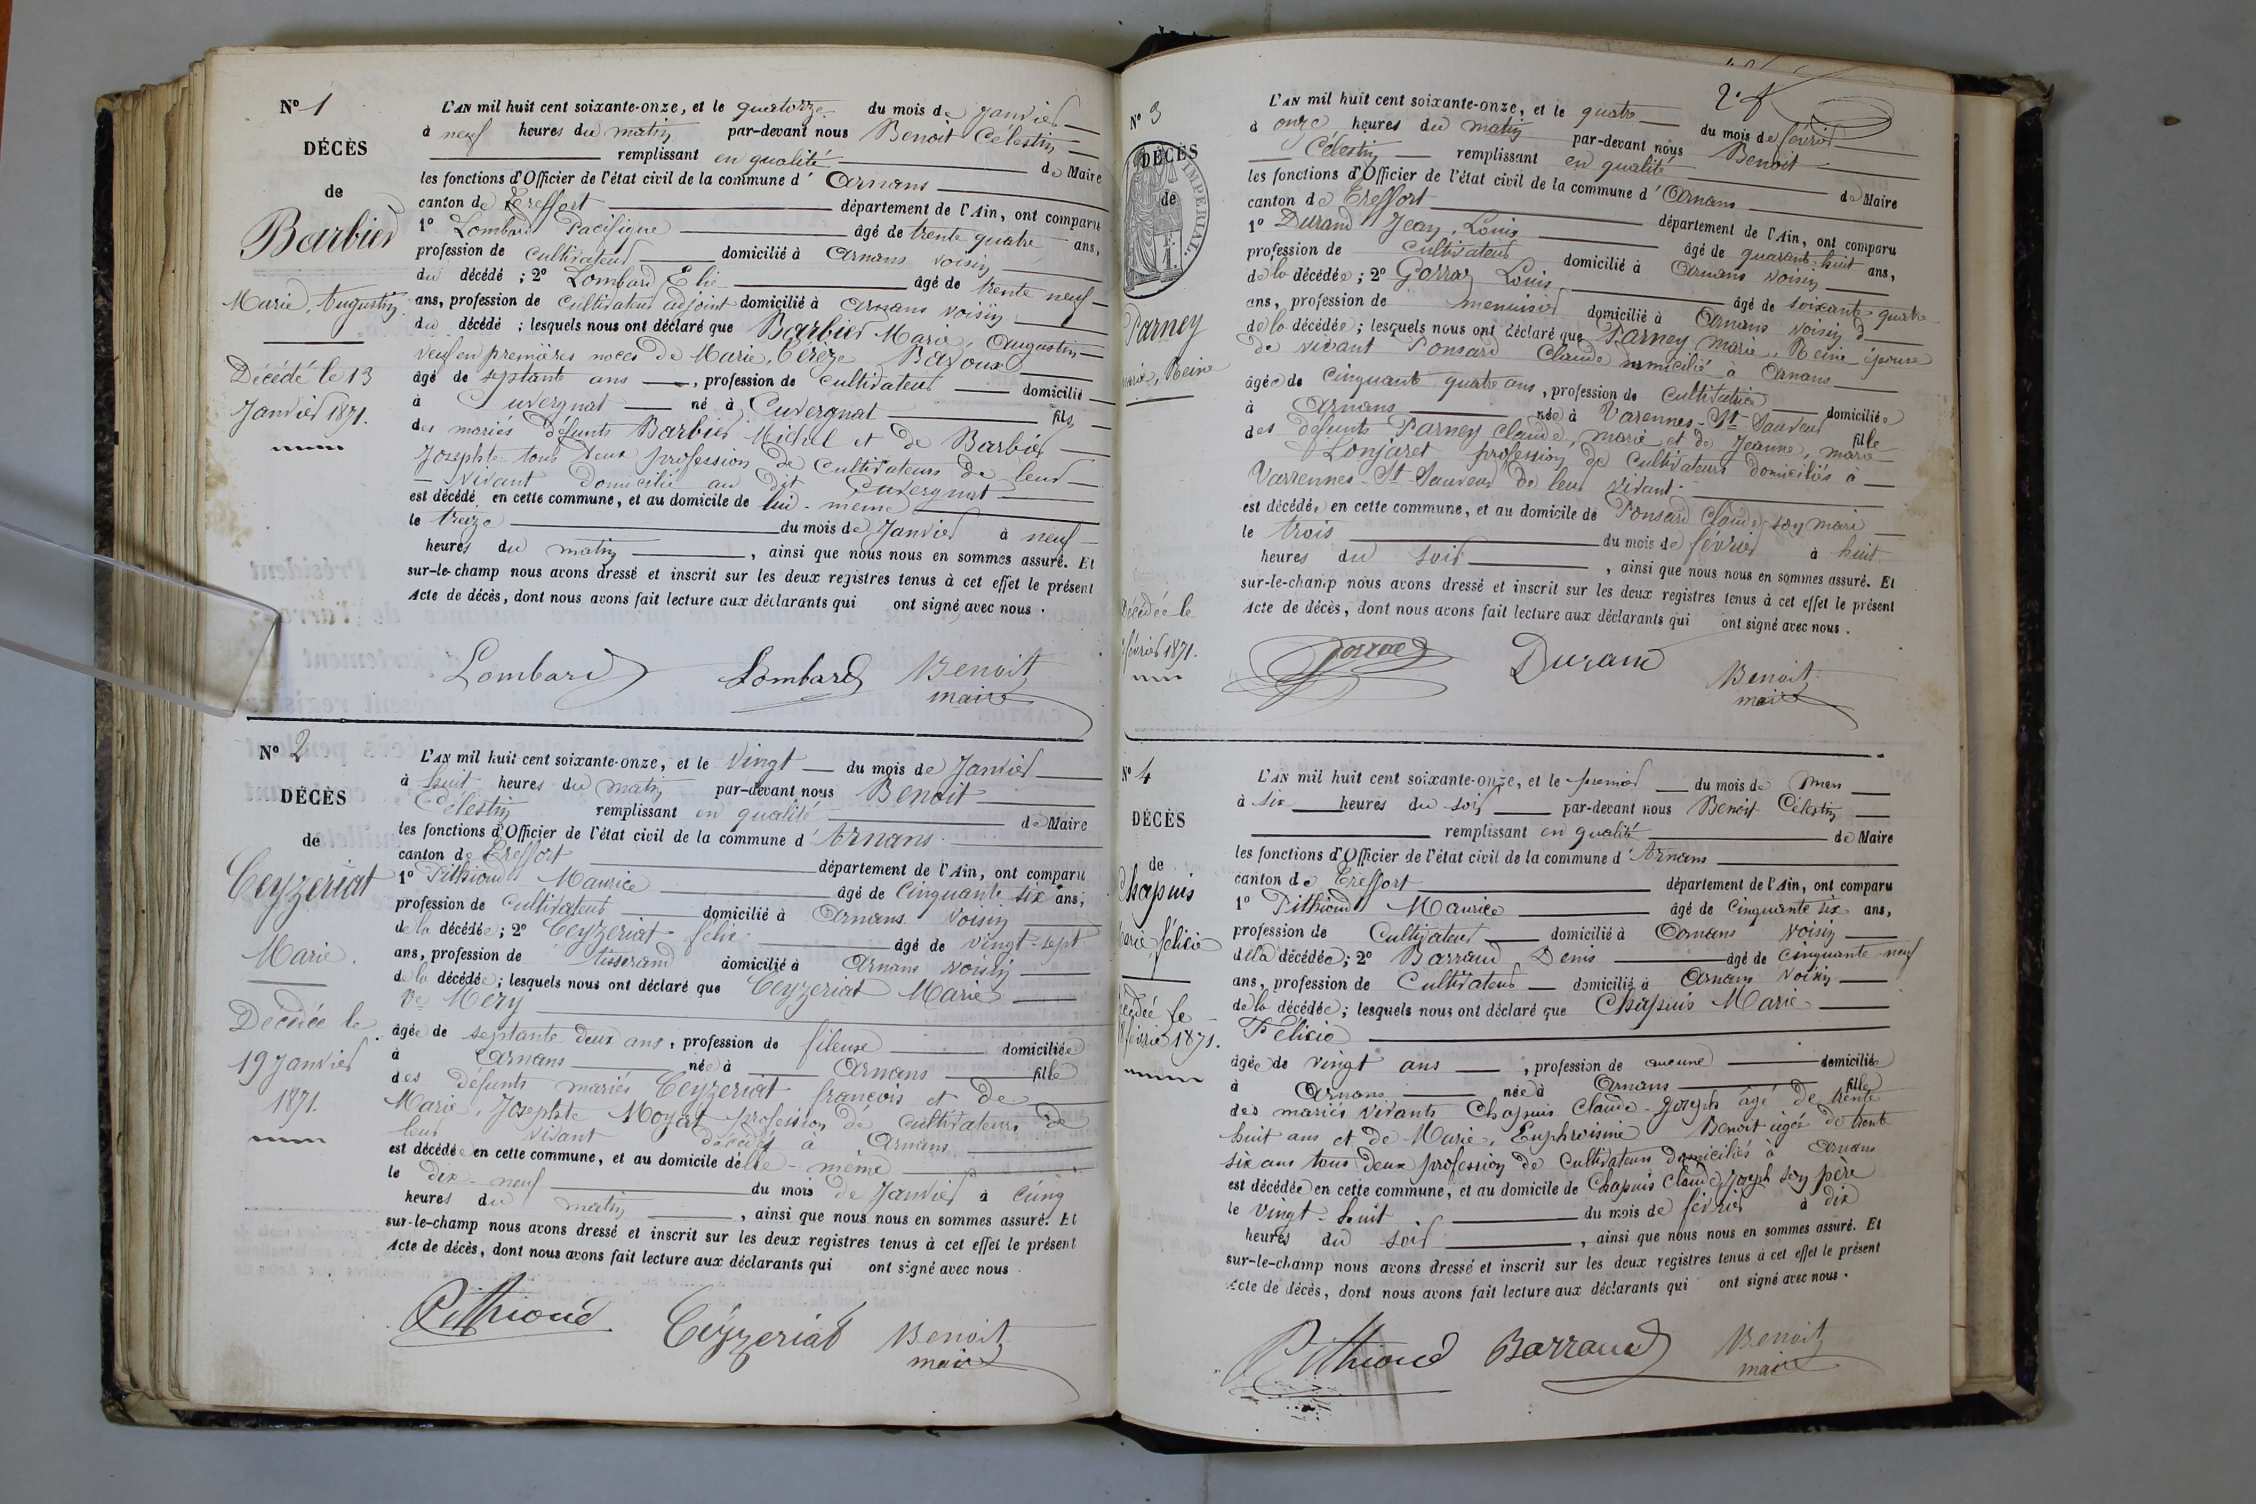 N° 1
DÉCÈS
de
Barbier
Marie, Augustin
Décédé le 13
Janvier 1871.
L'AN mil huit cent soixante-onze, et le quatorze du mois de Janvier
à neuf heures du matin par-devant nous Benoit Célestin
remplissant en qualité de Maire
les fonctions d'Officier de l'état civil de la commune d' Arnans
canton de Treffort département de l'Ain, ont comparu
1° Lombard Pacifique âgé de trente quatre ans,
profession de cultivateur domicilié à Arnans voisin
du décédé ; 2° Lombard Elie âgé de trente neuf
ans, profession de cultivateur adjoint domicilié à Arnans voisin
du décédé ; lesquels nous ont déclaré que Barbier Marie, Augustin
veuf en premières noces de Marie, Térèze Bavoux
âgé de septante ans, profession de cultivateur domicilié
à Cuvergnat né à Cuvergnat fils
des mariés défunts Barbier Michel et de Barbier
Josephte tous deux profession de cultivateurs de leur
vivant domiciliés au dit Cuvergnat
est décédé en cette commune, et au domicile de lui-même
le treize du mois de Janvier à neuf
heures du matin, ainsi que nous nous en sommes assuré. Et
sur-le-champ nous avons dressé et inscrit sur les deux registres tenus à cet effet le présent
Acte de décès, dont nous avons fait lecture aux déclarants qui ont signé avec nous.
Lombard Lombard Benoit
maire
N° 2
DÉCÈS
de
Ceyzeriat
Marie.
Décédée le
19 Janvier
1871.
L'AN mil huit cent soixante-onze, et le vingt du mois de Janvier
à huit heures du matin par-devant nous Benoit
Célestin remplissant en qualité de Maire
les fonctions d'Officier de l'état civil de la commune d' Arnans
canton de Treffort département de l'Ain, ont comparu
1° Pithioud Maurice âgé de cinquante six ans,
profession de cultivateur domicilié à Arnans voisin
de la décédée ; 2° Ceyzeriat félix âgé de vingt-sept
ans, profession de tisserand domicilié à Arnans voisin
de la décédée ; lesquels nous ont déclaré que Ceyzeriat Marie
Ve Mery
âgée de septante deux ans, profession de fileuse domiciliée
à Arnans née à Arnans fille
des défunts mariés Ceyzeriat françois et de
Marie, Josephte Moyat profession de cultivateurs de
leur vivant décédés à Arnans
est décédée en cette commune, et au domicile d'elle-même
le dix-neuf du mois de Janvier à cinq
heures du matin, ainsi que nous nous en sommes assuré. Et
sur-le-champ nous avons dressé et inscrit sur les deux registres tenus à cet effet le présent
Acte de décès, dont nous avons fait lecture aux déclarants qui ont signé avec nous
Pithioud Ceyzeriat Benoit
maire
2e f
N° 3
DÉCÈS
de
IMPERIAL.
Parney
Marie, Reine
Décédée le
février 1871.
L'AN mil huit cent soixante-onze, et le quatre du mois de février
à onze heures du matin par-devant nous Benoit
Célestin remplissant en qualité de Maire
les fonctions d'Officier de l'état civil de la commune d' Arnans
canton de Treffort département de l'Ain, ont comparu
1° Durand Jean, Louis âgé de quarante-huit ans,
profession de cultivateur domicilié à Arnans voisin
de la décédée ; 2° Gorraz Louis âgé de soixante-quatre
ans, profession de menuisier domicilié à Arnans voisin d
de la décédée ; lesquels nous ont déclaré que Parney, Marie, Reine épouse
de vivant Ponsard Claude domicilié à Arnans
âgée de cinquante quatre ans, profession de cultivatrice domiciliée
à Arnans née à Varennes-St-Sauveur fille
des défunts Parney Claude, marie et de Jeanne, marie
Lonjaret profession de cultivateurs domiciliés à
Varrennes-St-Sauveur de leur vivant.
est décédée en cette commune, et au domicile de Ponsard Claude son mari
le trois du mois de février à huit
heures du soir, ainsi que nous nous en sommes assuré. Et
sur-le-champ nous avons dressé et inscrit sur les deux registres tenus à cet effet le présent
Acte de décès, dont nous avons fait lecture aux déclarants qui ont signé avec nous.
Durand Benoit
maire
N° 4
DÉCÈS
de
Chapuis
Marie, félicie
Décédée le
février 1871.
L'AN mil huit cent soixante-onze, et le premier du mois de Mars
à six heures du soir par-devant nous Benoit Célestin
remplissant en qualité de Maire
les fonctions d'Officier de l'état civil de la commune d' Arnans
canton de Treffort département de l'Ain, ont comparu
1° Pithioud Maurice âgé de cinquante six ans,
profession de Cultivateur domicilié à Arnans voisin
de la décédée ; 2° Barraud Denis âgé de cinquante neuf
ans, profession de Cultivateur domicilié à Arnans voisin
de la décédée ; lesquels nous ont déclaré que Chapuis Marie
Félicie
âgée de vingt ans, profession de aucune domiciliée
à Arnans née à Arnans fille
des mariés vivants Chapuis Claude-Joseph âgé de trente
huit ans et de Marie, Euphroisine Benoit agée de trente
six ans tous deux profession de cultivateurs domiciliés à Arnans
est décédée en cette commune, et au domicile de Chapuis Claude, Joseph son père
le vingt-huit du mois de février à dix
heures du soir, ainsi que nous nous en sommes assuré. Et
sur-le-champ nous avons dressé et inscrit sur les deux registres tenus à cet effet le présent
Acte de décès, dont nous avons fait lecture aux déclarants qui ont signé avec nous.
Pithioud Barraud Benoit
maire